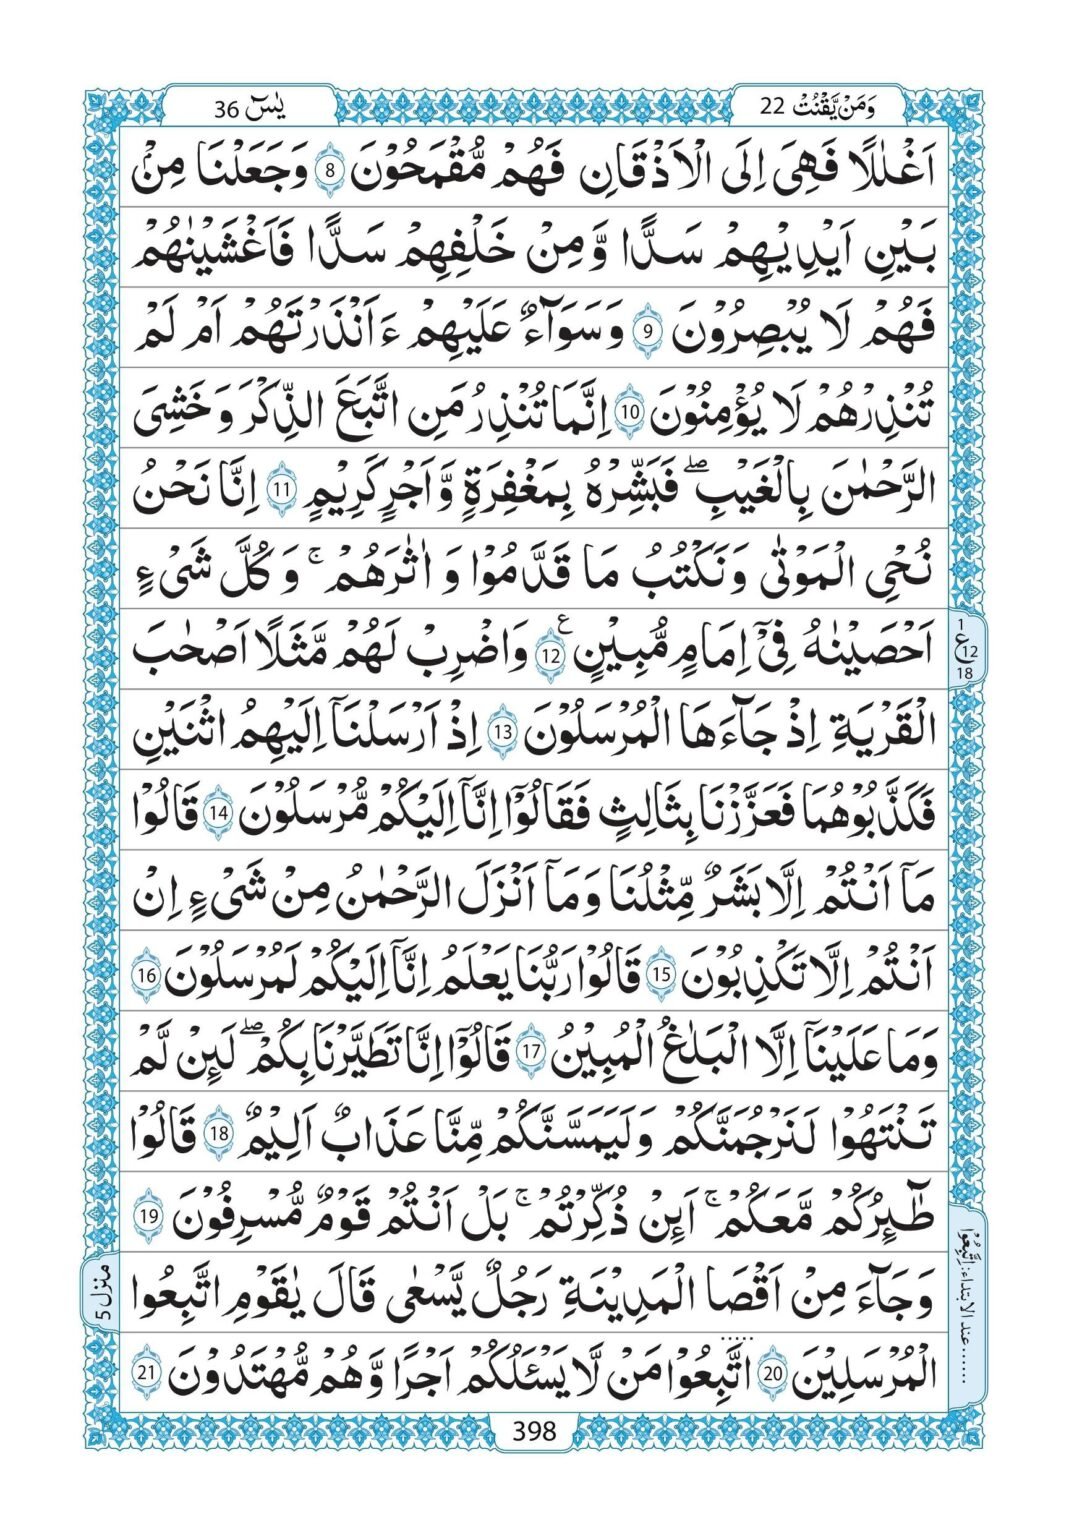 وَمَنْ يَّقْنُتْ 22
يٰسٓ 36
اَغْلٰلًا فَهِىَ اِلَى الْاَذْقَانِ فَهُمْ مُّقْمَحُوْنَ 8 وَجَعَلْنَا مِنْۢ
بَيْنِ اَيْدِيْهِمْ سَدًّا وَّمِنْ خَلْفِهِمْ سَدًّا فَاَغْشَيْنٰهُمْ
فَهُمْ لَا يُبْصِرُوْنَ 9 وَسَوَآءٌ عَلَيْهِمْ ءَاَنْذَرْتَهُمْ اَمْ لَمْ
تُنْذِرْهُمْ لَا يُؤْمِنُوْنَ 10 اِنَّمَا تُنْذِرُ مَنِ اتَّبَعَ الذِّكْرَ وَخَشِىَ
الرَّحْمٰنَ بِالْغَيْبِ ۖ فَبَشِّرْهُ بِمَغْفِرَةٍ وَّاَجْرٍ كَرِيْمٍ 11 اِنَّا نَحْنُ
نُحْىِ الْمَوْتٰى وَنَكْتُبُ مَا قَدَّمُوْا وَ اٰثَرَهُمْ ۚ وَكُلَّ شَىْءٍ
اَحْصَيْنٰهُ فِىْٓ اِمَامٍ مُّبِيْنٍ 12 ع وَاضْرِبْ لَهُمْ مَّثَلًا اَصْحٰبَ
1
ع 12
18
الْقَرْيَةِ اِذْ جَآءَهَا الْمُرْسَلُوْنَ 13 اِذْ اَرْسَلْنَآ اِلَيْهِمُ اثْنَيْنِ
فَكَذَّبُوْهُمَا فَعَزَّزْنَا بِثَالِثٍ فَقَالُوْٓا اِنَّآ اِلَيْكُمْ مُّرْسَلُوْنَ 14 قَالُوْا
مَآ اَنْتُمْ اِلَّا بَشَرٌ مِّثْلُنَا وَمَآ اَنْزَلَ الرَّحْمٰنُ مِنْ شَىْءٍ اِنْ
اَنْتُمْ اِلَّا تَكْذِبُوْنَ 15 قَالُوْا رَبُّنَا يَعْلَمُ اِنَّآ اِلَيْكُمْ لَمُرْسَلُوْنَ 16
وَمَا عَلَيْنَآ اِلَّا الْبَلٰغُ الْمُبِيْنُ 17 قَالُوْٓا اِنَّا تَطَيَّرْنَا بِكُمْ ۖ لَئِنْ لَّمْ
تَنْتَهُوْا لَنَرْجُمَنَّكُمْ وَلَيَمَسَّنَّكُمْ مِّنَّا عَذَابٌ اَلِيْمٌ 18 قَالُوْا
طٰٓئِرُكُمْ مَّعَكُمْ ۚ اَئِنْ ذُكِّرْتُمْ ۚ بَلْ اَنْتُمْ قَوْمٌ مُّسْرِفُوْنَ 19
وَجَآءَ مِنْ اَقْصَا الْمَدِيْنَةِ رَجُلٌ يَّسْعٰى قَالَ يٰقَوْمِ اتَّبِعُوا
الْمُرْسَلِيْنَ 20 اتَّبِعُوْا مَنْ لَّا يَسْـَٔلُكُمْ اَجْرًا وَّهُمْ مُّهْتَدُوْنَ 21
..... عند الابتداء: اِتَّبِعُوْا
منزل 5
398